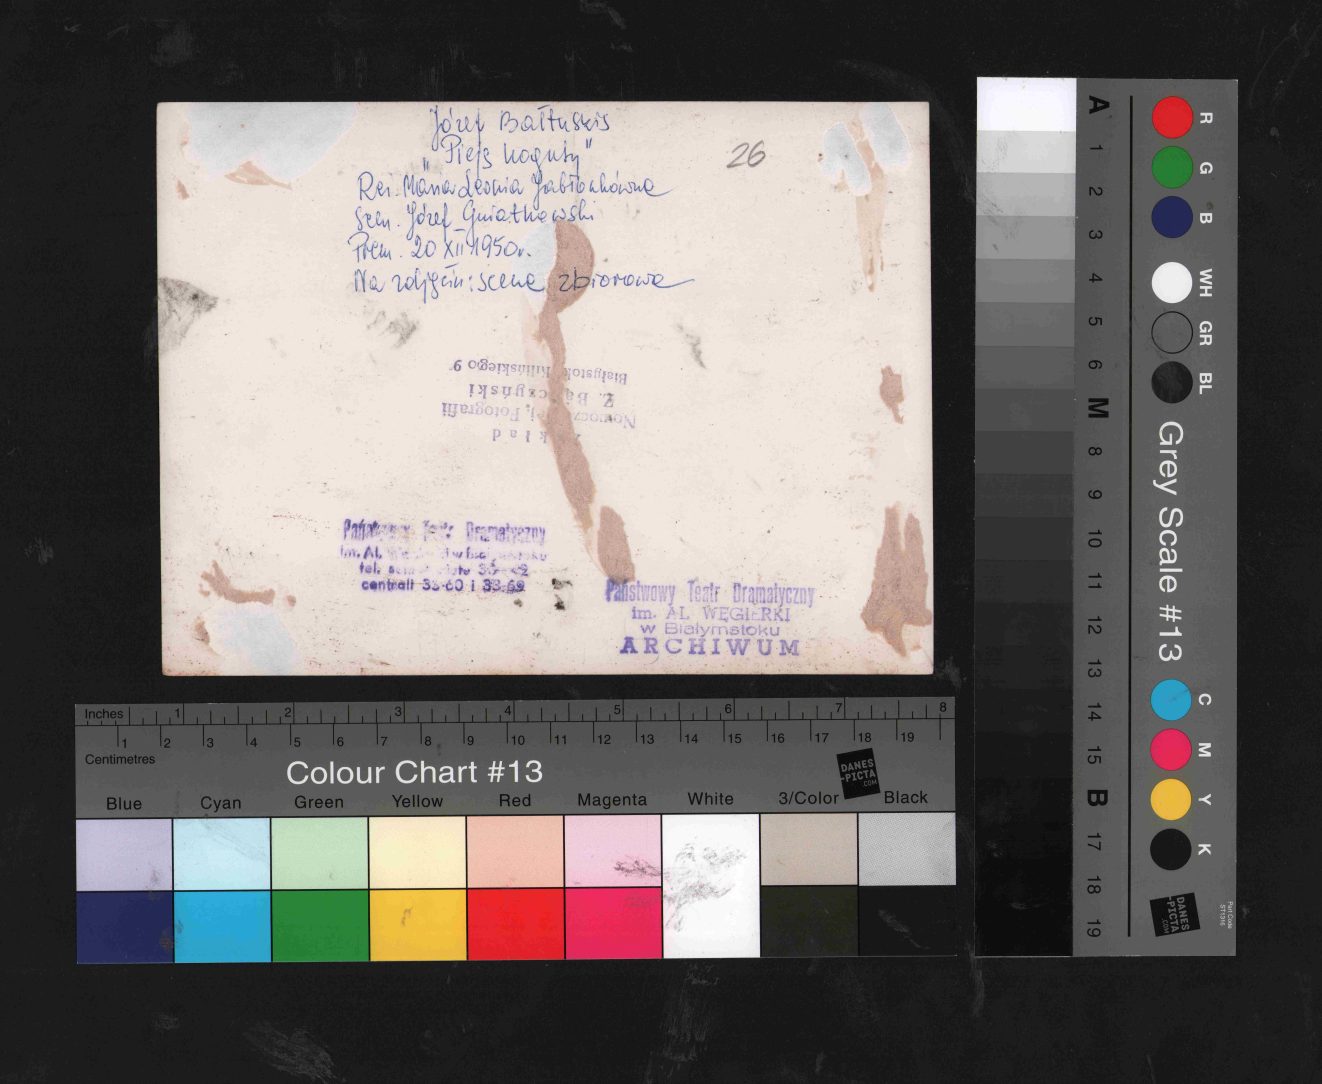 Józef Bałtuskis
"Pieją koguty"
Reż. Maria Leonia Jabłonkówna
Scen. Józef Gniatkowski
Prem. 20 XII 1950r.
Na zdjęciu: scena zbiorowa
26
Zakład
Nowoczesnej Fotografii
Z. Bączyński
Białystok Kilińskiego 9
Państwowy Teatr Dramatyczny
im. Al. w Białymstoku
tel.
centrali 33-60 i 33-69
Państwowy Teatr Dramatyczny
im. AL. WĘGIERKI
w Białymstoku
ARCHIWUM
Inches 1 2 3 4 5 6 7 8
1 2 3 4 5 6 7 8 9 10 11 12 13 14 15 16 17 18 19
Centimetres
Colour Chart #13
DANES
-PICTA
.COM
Blue Cyan Green Yellow Red Magenta White 3/Color Black
A 1 2 3 4 5 6 M 8 9 10 11 12 13 14 15 B 17 18 19
R G B WH GR BL
Grey Scale #13
C M Y K
DANES
-PICTA
.COM
Part Code